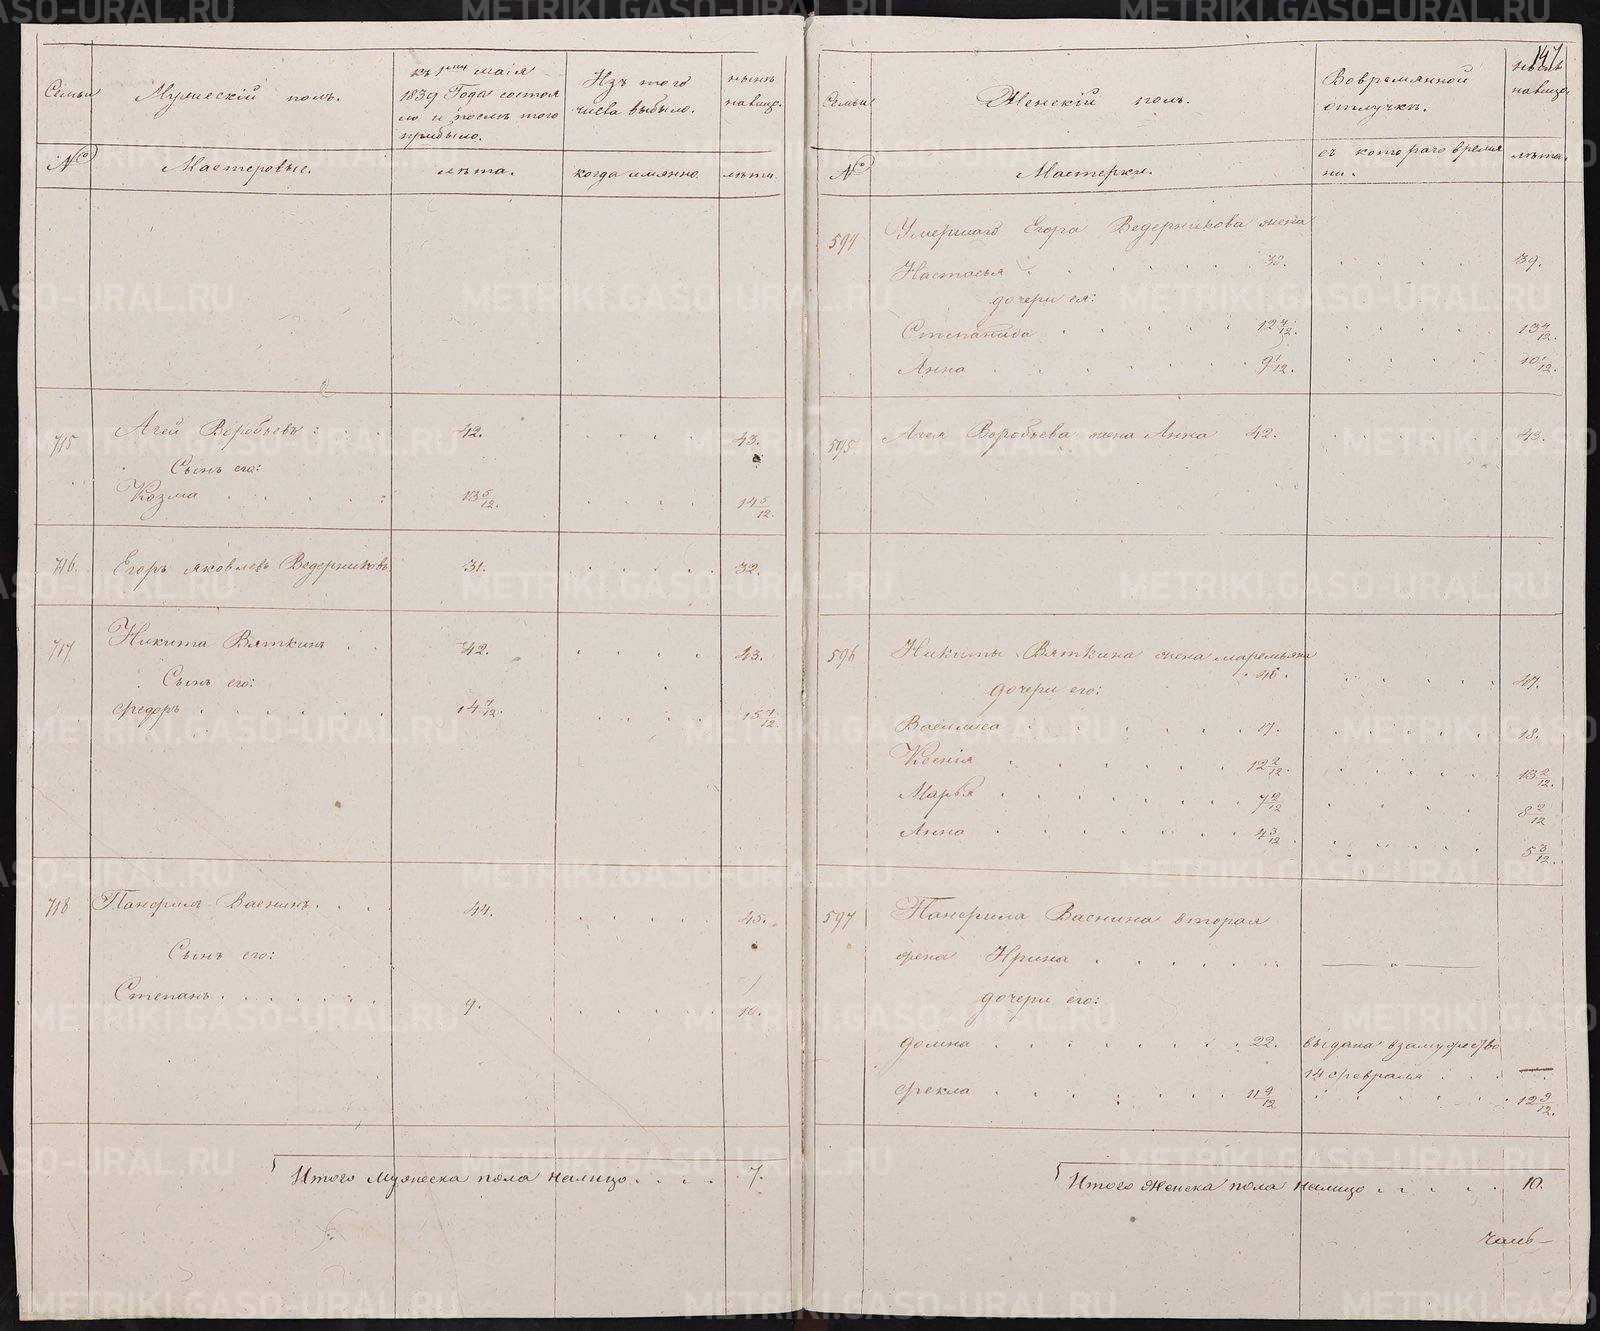 147
Семьи
Мужескій полъ.
къ 1му маія 1839 Года состояло и послѣ того прибыло.
Изъ того числа выбыло.
нынѣ налицо.
№
Мастеровые.
лѣта.
когда имянно.
лѣта.
715
Агей Воробьевъ 42. 43.
Сынъ его:
Козма 13 5/12. 14 5/12.
716. Егоръ яковлевъ Ведерниковъ 31. 32.
717 Никита Вяткинъ 42. 43.
Сынъ его:
Федоръ 14 7/12. 15 7/12
718 Панфилъ Васнинъ 44. 45.
Сынъ его:
Степанъ 9. 10.
Итого мужеска пола налицо 7.
Семьи
Женскій полъ.
Вовремянной отлучкѣ.
нынѣ налицо
№
Мастерки.
съ котораго времяни.
лѣта.
594 Умершаго Егора Ведерникова жена
Настасья 38. 39.
дочери ея:
Степанида 12 4/12. 13 4/12.
Анна 9 1/12. 10 1/12.
595 Агея Воробьева жена Анна 42. 43.
596 Никиты Вяткина жена маремьяна
46. 47.
дочери его:
Василиса 17. 18.
Ксенія 12 2/12. 13 2/12.
Марья 7 2/12 8 2/12
Анна 4 3/12 5 3/12.
597 Панфила Васнина вторая
жена Ирина
дочери его:
домна 22. выдана взамужество
14 февраля
фекла 11 9/12 12 9/12.
Итого женска пола налицо 10.
METRIKI.GASO-URAL.RU